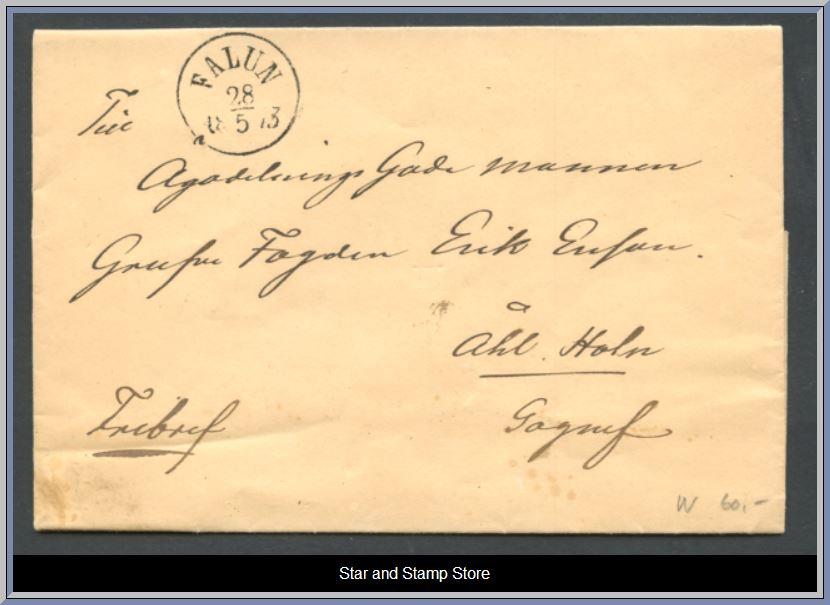 FALUN
28
18 5 73
Till
Agodelnings Gode mannen
Grufve Fogden Erik Ersson.
Åhl. Holn
Fribref
Gagnef
W 60,-
Star and Stamp Store